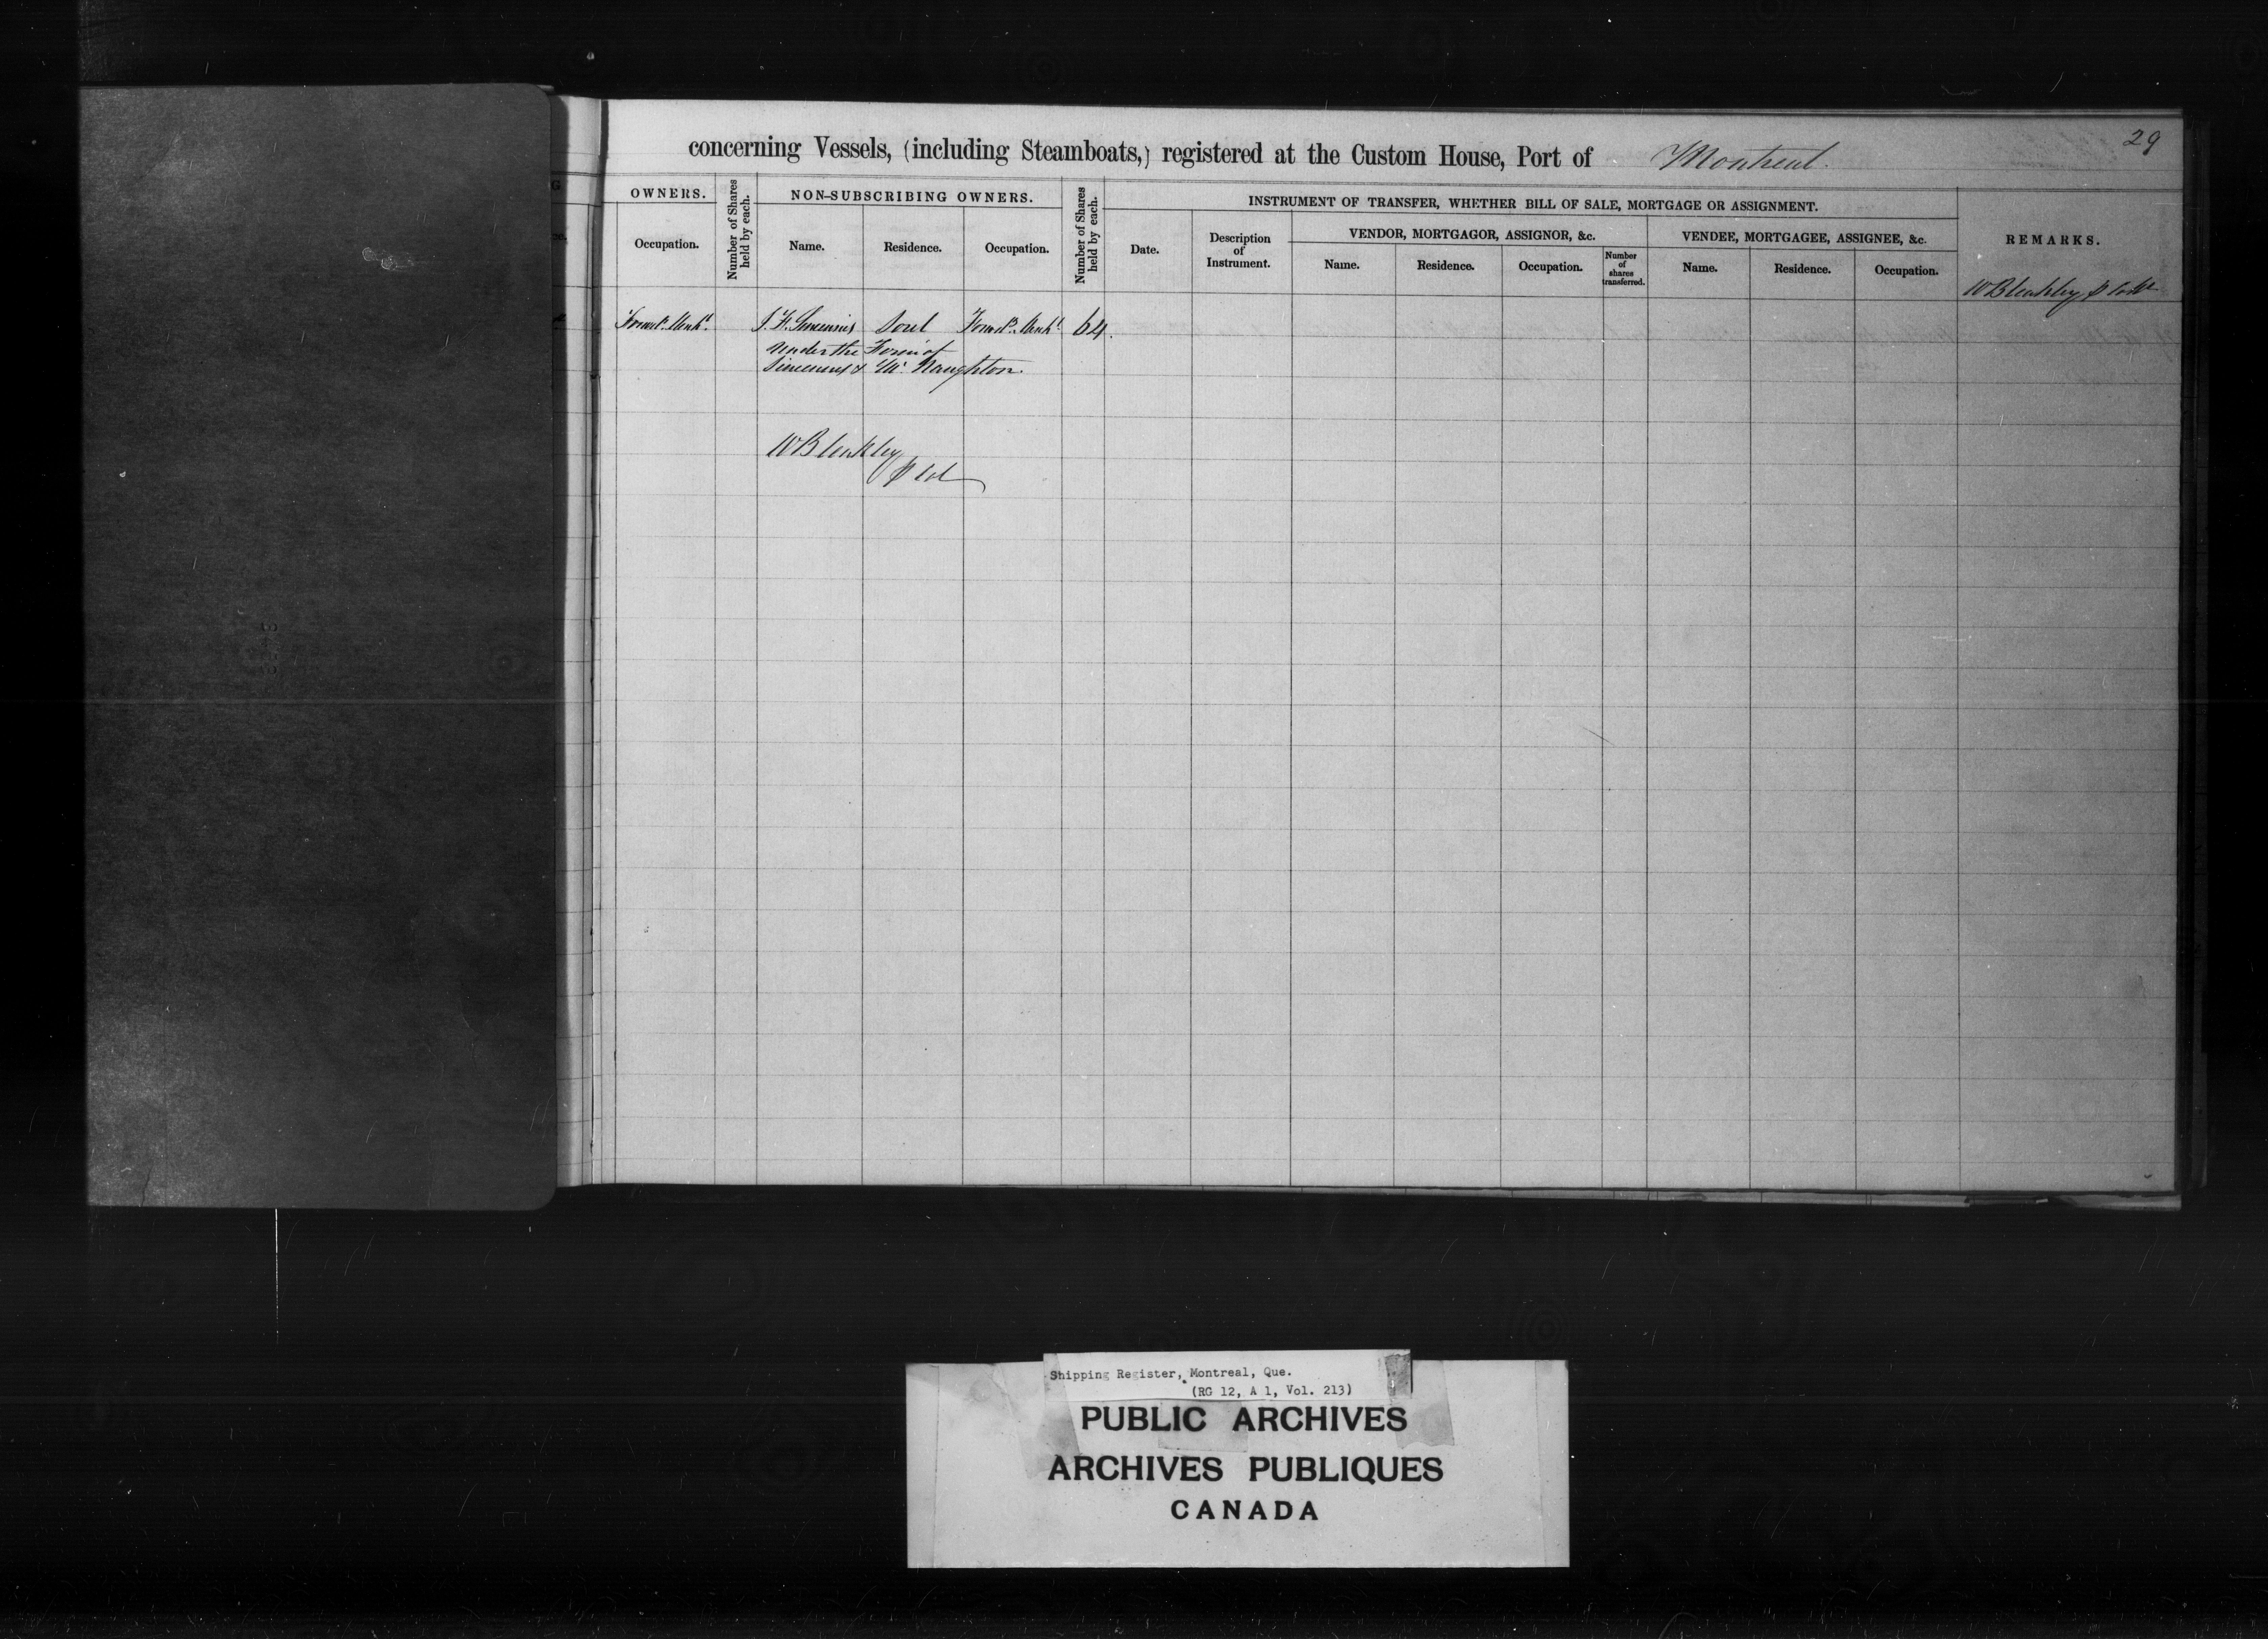 29
concerning Vessels, (including Steamboats,) registered at the Custom House, Port of Montreal.
OWNERS.
Occupation.
Number of Shares held by each.
NON-SUBSCRIBING OWNERS.
Name.
Residence.
Occupation.
Number of Shares held by each.
INSTRUMENT OF TRANSFER, WHETHER BILL OF SALE, MORTGAGE OR ASSIGNMENT.
Date.
Description
of
Instrument.
VENDOR, MORTGAGOR, ASSIGNOR, &c.
Name.
Residence.
Occupation.
Number
of
shares
transferred.
VENDEE, MORTGAGEE, ASSIGNEE, &c.
Name.
Residence.
Occupation.
REMARKS.
W Bleakley
J. F. Sorel 64.
under the Firm of
& Mc Naughton.
W Bleakley
Shipping Register, Montreal, Que.
(RG 12, A 1, Vol. 213)
PUBLIC ARCHIVES
ARCHIVES PUBLIQUES
CANADA